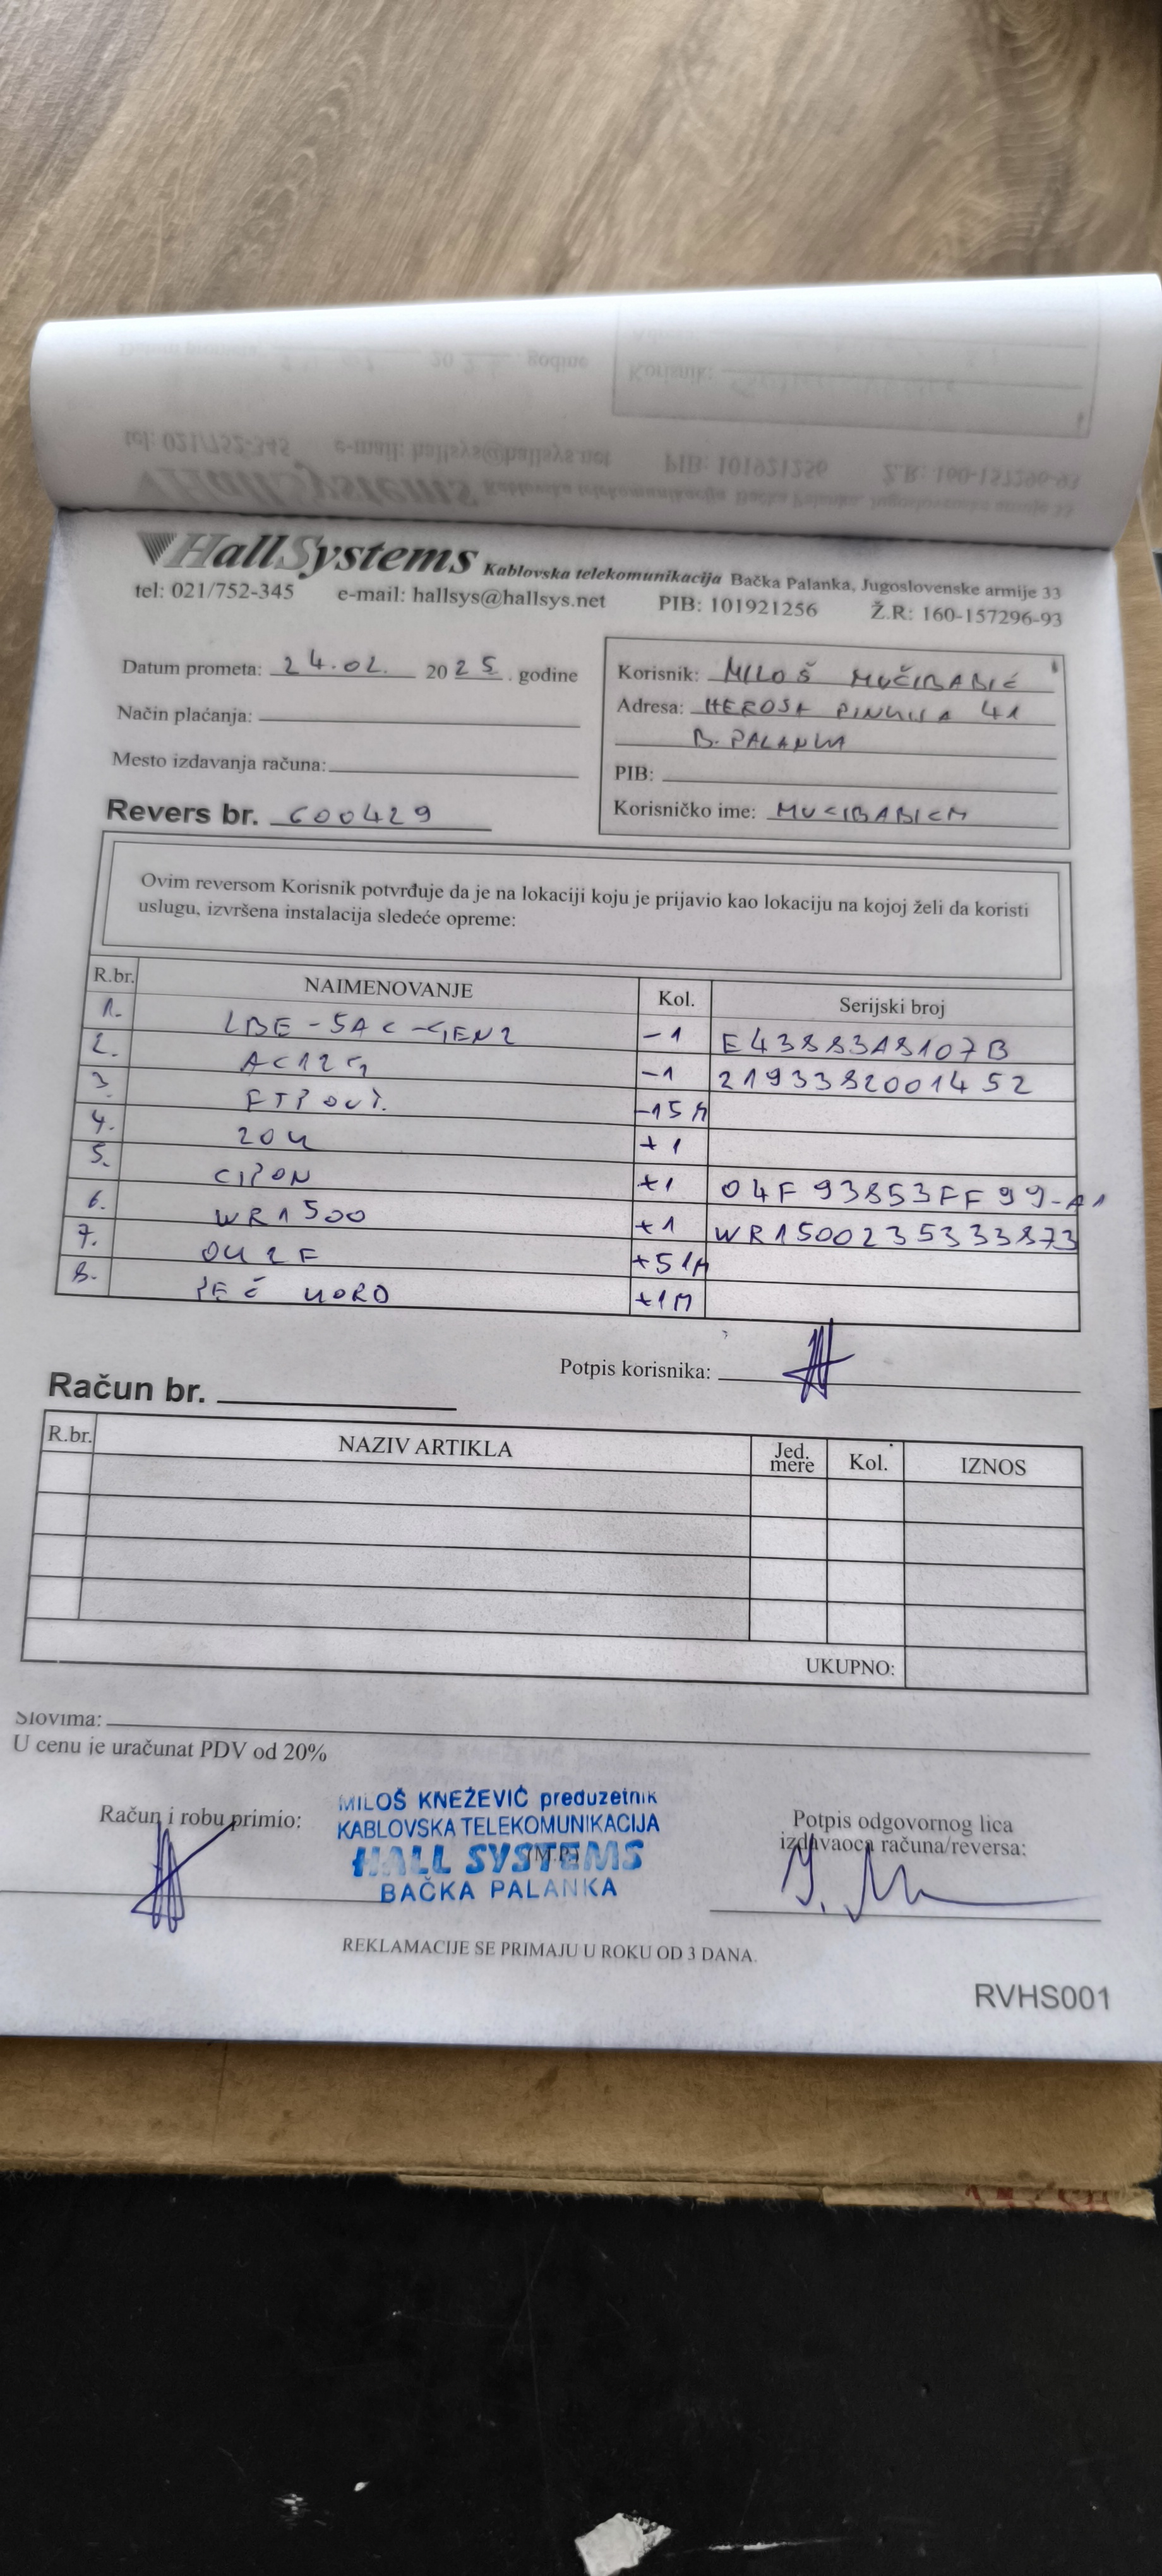 HallSystems Kablovska telekomunikacija Bačka Palanka, Jugoslovenske armije 33
tel: 021/752-345 e-mail: hallsys@hallsys.net PIB: 101921256 Ž.R: 160-157296-93
Datum prometa: 24.02. 2025. godine
Način plaćanja:
Mesto izdavanja računa:
Revers br. 600429
Korisnik: MILOŠ MUČIBABIĆ
Adresa: HEROJA PINKIJA 41
B. PALANKA
PIB:
Korisničko ime: MUCIBABICM
Ovim reversom Korisnik potvrđuje da je na lokaciji koju je prijavio kao lokaciju na kojoj želi da koristi
uslugu, izvršena instalacija sledeće opreme:
R.br. NAIMENOVANJE Kol. Serijski broj
1. LBE-5AC-GEN2 -1 E43883A8107B
2. AC12G -1 2193382001452
3. FTP OUT. -15M
4. ZOK +1
5. CIPON +1 04F93853FF99-A1
6. WR1500 +1 WR1500235333873
7. OK2F +51M
8. PEČ KORD +1M
Potpis korisnika:
Račun br.
R.br. NAZIV ARTIKLA Jed. mere Kol. IZNOS
UKUPNO:
Slovima:
U cenu je uračunat PDV od 20%
Račun i robu primio:
MILOŠ KNEŽEVIĆ preduzetnik
KABLOVSKA TELEKOMUNIKACIJA
HALL SYSTEMS
(M.P.)
BAČKA PALANKA
Potpis odgovornog lica
izdavaoca računa/reversa:
REKLAMACIJE SE PRIMAJU U ROKU OD 3 DANA.
RVHS001